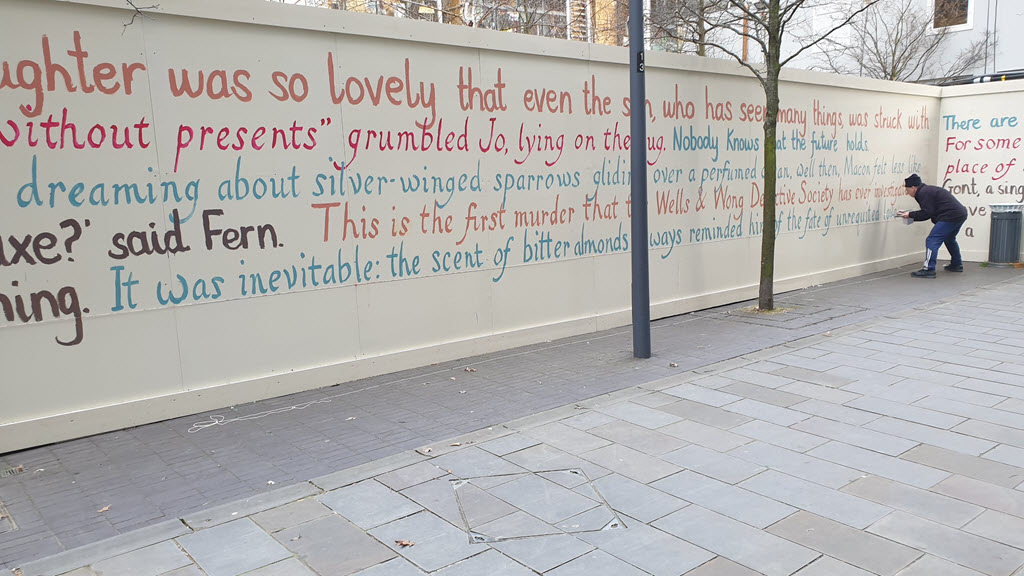 ughter was so lovely that even the sun, who has seen many things, was struck with
without presents" grumbled Jo, lying on the rug. Nobody Knows what the future holds.
dreaming about silver-winged sparrows gliding over a perfumed ocean, well then, Macon felt less like
axe?' said Fern. This is the first murder that the Wells & Wong Detective Society has ever investigated
ning. It was inevitable: the scent of bitter almonds always reminded him of the fate of unrequited
There are
For some
place of
Gont, a sing
ave
a
13